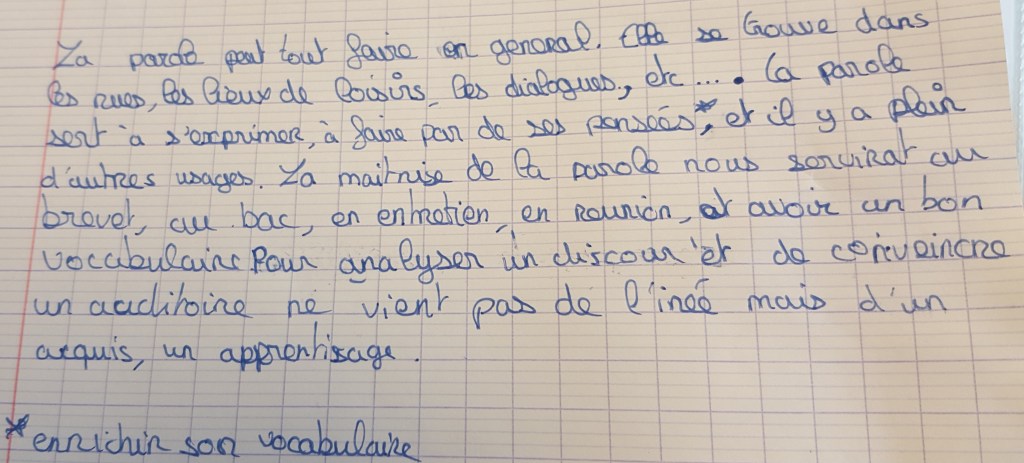 La parole peut tout faire en general. Elle se trouve dans
les rues, les lieux de loisirs, les dialogues, etc .... La parole
sert à s'exprimer, à faire par de ses pensées*, et il y a plein
d'autres usages. La maitrise de la parole nous servirat au
brevet, au bac, en entretien, en reunion, et avoir un bon
vocabulaire pour analyser un discour et de conveincre
un auditoire ne vient pas de l'inée mais d'un
acquis, un apprentisage.
*enrichir son vocabulaire